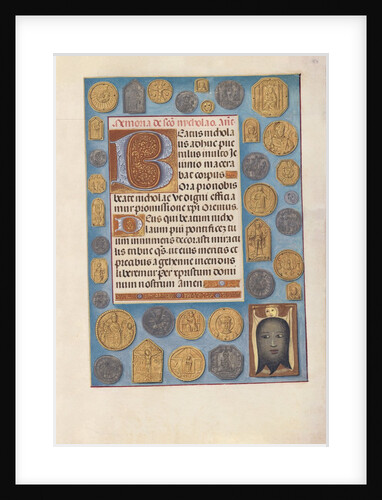 Memoria de sco nycholao. Añe
Beatus nichola
us adhuc pue
rulus multo Je
iunio macera
bat corpus
Ora pro nobis
beate nicholae ut digni effitia
mur promissione xpi Oremus.
Deus qui beatum nicho
laum pium pontificem tu
um innumeris decorasti miracu
lis tribue qs. ut eius meritis et
precibus a gehenne incendiis
liberemur per xpistum domi
num nostrum Amen